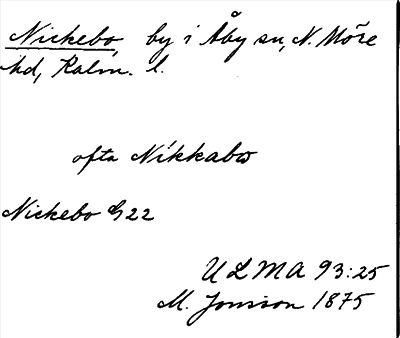 Nickebo, by i Åby sn, N. Möre
hd, Kalm. l.
ofta Nikkabω
Nickebo G22
ULMA 93:25
M. Jonsson 1875